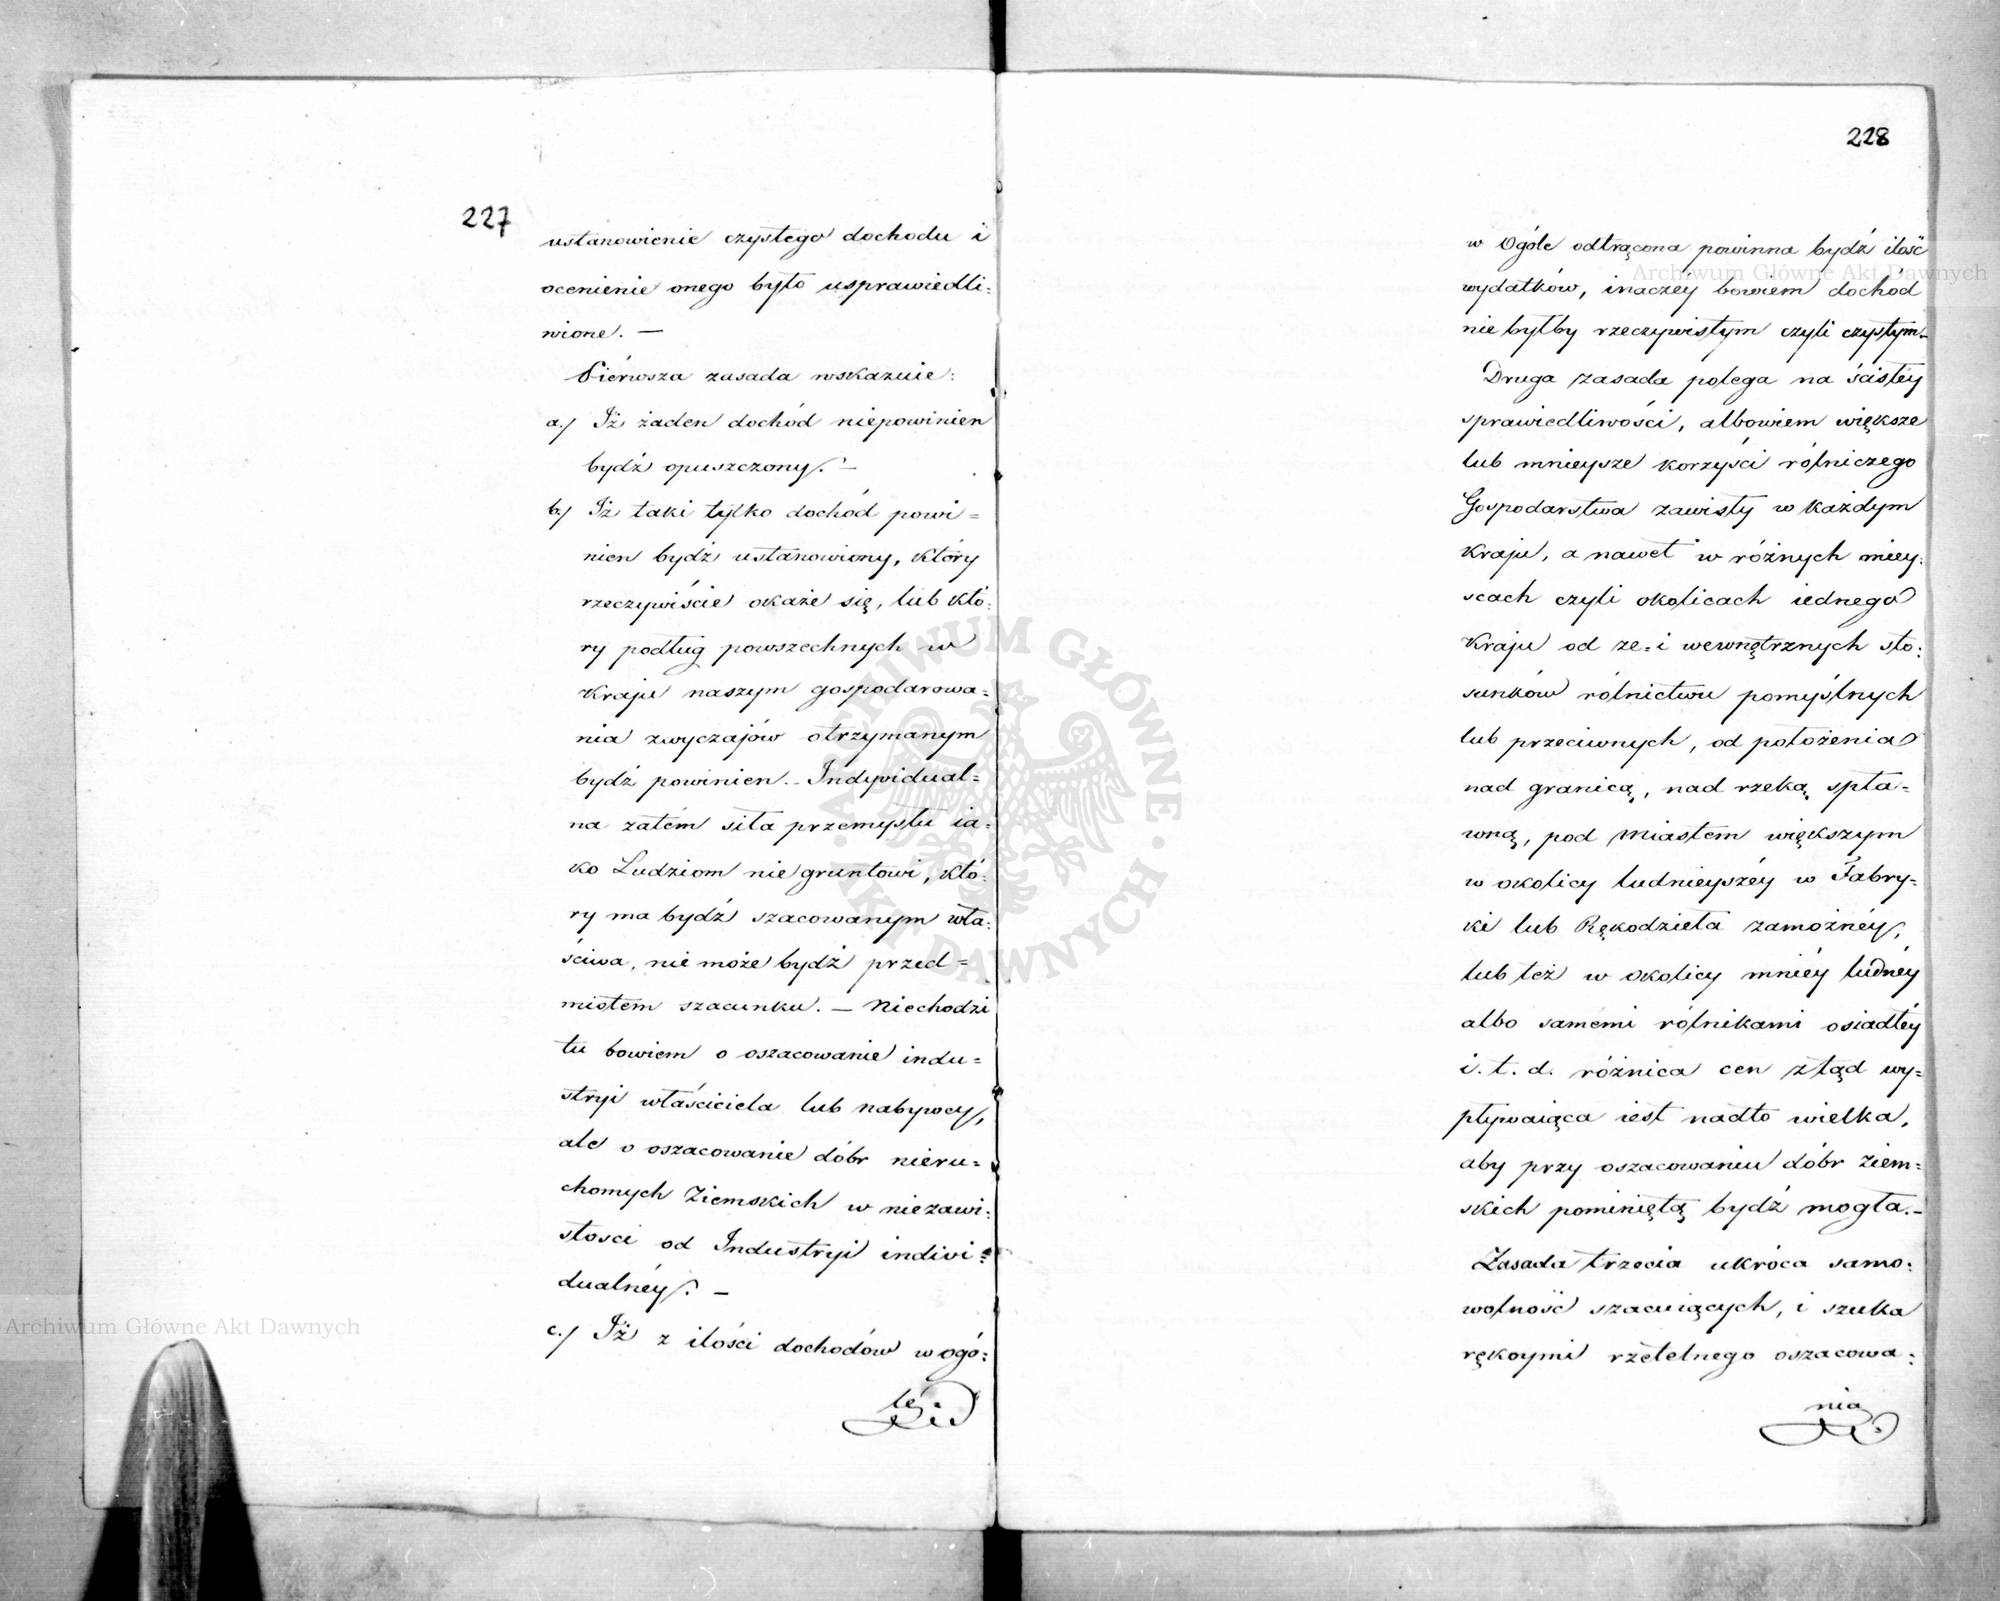 227
ustanowienie czystego dochodu i
ocenienie onego było usprawiedli:
wione. —
Piérwsza zasada wskazuie:
a./ Iż żaden dochód niepowinien
bydź opuszczony. —
b./ Iż taki tylko dochód powi=
nien bydź ustanowiony, który
rzeczywiście okaże się, lub któ:
ry podług powszechnych w
Kraju naszym gospodarowa=
nia zwyczajów otrzymanym
bydź powinien. - Indywidual=
na zatém siła przemysłu ia:
ko Ludziom nie gruntowi, któ:
ry ma bydź szacowanym wła:
ściwa, nie może bydź przed=
miotem szacunku. — Niechodzi
tu bowiem o oszacowanie indu=
stryi właściciela lub nabywcy,
ale o oszacowanie dóbr nieru=
chomych Ziemskich w niezawi:
słosci od Industryi indivi=
dualnéy. —
c./ Iż z ilości dochodów w ogó:
le
228
w Ogóle odtrącona powinna bydź ilość
wydatków, inaczey bowiem dochód
nie byłby rzeczywistym czyli czystym. -
Druga zasada polega na ścisłéy
sprawiedliwości, albowiem większe
lub mnieysze korzyści rólniczego
Gospodarstwa zawisły w każdym
Kraju, a nawet w różnych miey:
scach czyli okolicach iednego
Kraju od ze= i wewnętrznych sto:
sunków rólnictwu pomyślnych
lub przeciwnych, od położenia
nad granicą, nad rzeką spła=
wną, pod Miastem większym
w okolicy ludnieyszéy w Fabry=
ki lub Rękodzieła zamożnéy,
lub też w okolicy mniéy ludnéy
albo samemi rólnikami osiadłéy
i. t. d. różnica cen ztąd wy=
pływaiąca iest nadto wielka,
aby przy oszacowaniu dóbr ziem=
skich pominiętą bydź mogła. -
Zasada trzecia ukróca samo:
wolność szacuiących, i szuka
rękoymi rzetelnego oszacowa:
nia